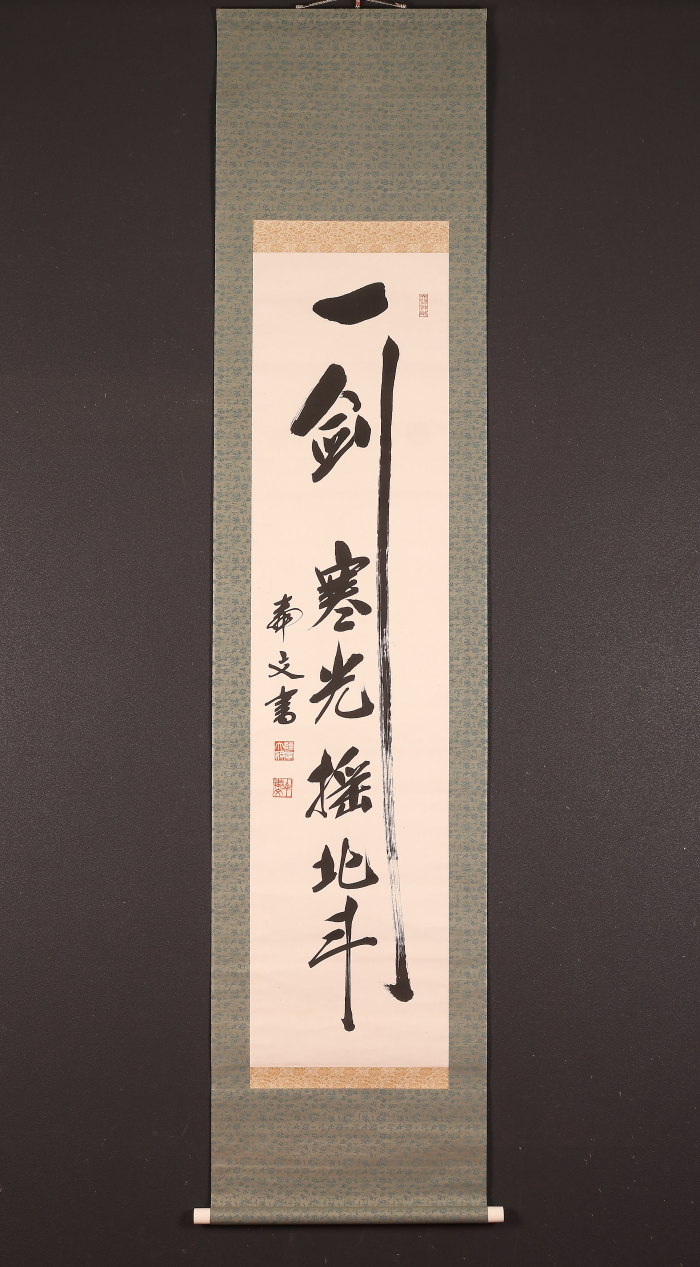 一剣寒光揺北斗
文書